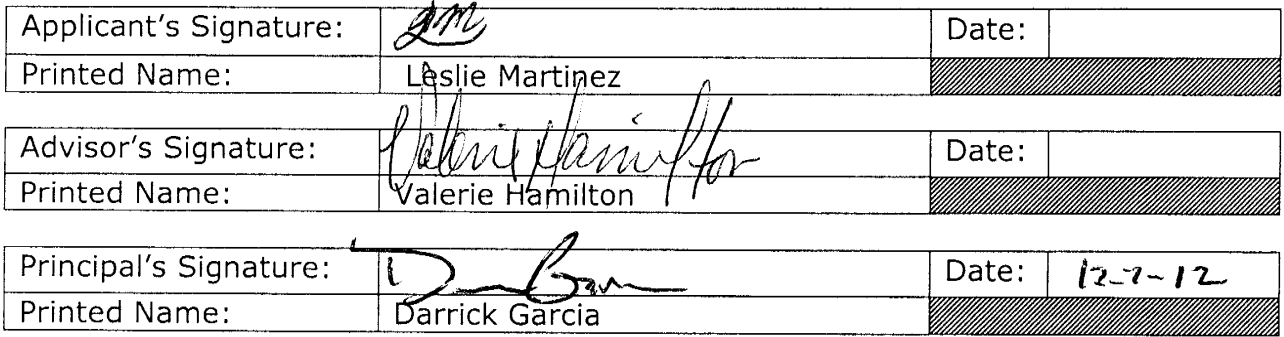 Applicant's Signature: Date:
Printed Name: Leslie Martinez
Advisor's Signature: Valerie Hamilton Date:
Printed Name: Valerie Hamilton
Principal's Signature: Date: 12-7-12
Printed Name: Darrick Garcia